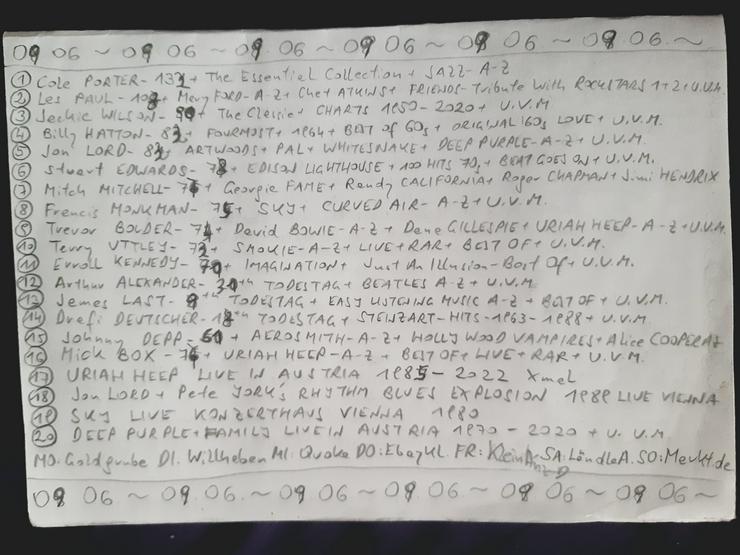 09 06 ~ 09 06 ~ 09 06 ~ 09 06 ~ 09 06 ~ 09 06 ~
① Cole PORTER - 132 + The Essentiel Collection + JAZZ - A-Z
② Les PAUL - 108 + Mery FORD - A-Z + Chet ATKINS + FRIENDS - Tribute With ROCKSTARS 1+2+U.V.M.
③ Jeckie WILSON - 90 + The Clessic + CHARTS 1950 - 2020 + U.V.M
④ Billy HATTON - 82 + FOURMOST + 1964 + BEST OF 60s + ORIGINAL 60s LOVE + U.V.M.
⑤ Jon LORD - 82 + ARTWOODS + PAL + WHITESNAKE + DEEP PURPLE - A-Z + U.V.M.
⑥ Stuert EDWARDS - 78 + EDISON LIGHTHOUSE + 100 HITS 70s + BEAT GOES ON + U.V.M.
⑦ Mitch MITCHELL - 76 + Georgie FAME + Rendy CALIFORNIA + Roger CHAPMAN + Jimi HENDRIX
⑧ Frencis MONKMAN - 75 + SKY + CURVED AIR - A-Z + U.V.M.
⑨ Trevor BOLDER - 74 + David BOWIE - A-Z + Dene GILLESPIE + URIAH HEEP - A-Z + U.V.M.
⑩ Terry UTTLEY - 73 + SMOKIE - A-Z + LIVE + RAR + BEST OF + U.V.M.
⑪ Erroll KENNEDY - 70 + IMAGINATION + Just An Illusion - Best Of + U.V.M.
⑫ Arthur ALEXANDER - 30th TODESTAG + BEATLES A-Z + U.V.M
⑬ Jemes LAST - 9th TODESTAG + EASY LISTENING MUSIC A-Z + BEST OF + U.V.M.
⑭ Drefi DEUTSCHER - 13th TODESTAG + STEINZART - HITS - 1963 - 1988 + U.V.M.
⑮ Johnny DEPP - 60 + AEROSMITH - A-Z + HOLLYWOOD VAMPIRES + Alice COOPER AZ
⑯ Mick BOX - 76 + URIAH HEEP - A-Z + BEST OF + LIVE + RAR + U.V.M.
⑰ URIAH HEEP LIVE IN AUSTRIA 1985 - 2022 Xmel
⑱ Jon LORD + Pete YORK's RHYTHM BLUES EXPLOSION 1989 LIVE VIENNA
⑲ SKY LIVE KONZERTHAUS VIENNA 1980
⑳ DEEP PURPLE + FAMILY LIVE IN AUSTRIA 1970 - 2020 + U. V. M
MO: Goldgrube DI. Willheben MI: Quoke DO: EbayKl. FR: Klein Anz. D SA: LändleA. SO: Merkt.de
09 06 ~ 09 06 ~ 09 06 ~ 09 06 ~ 09 06 ~ 09 06 ~